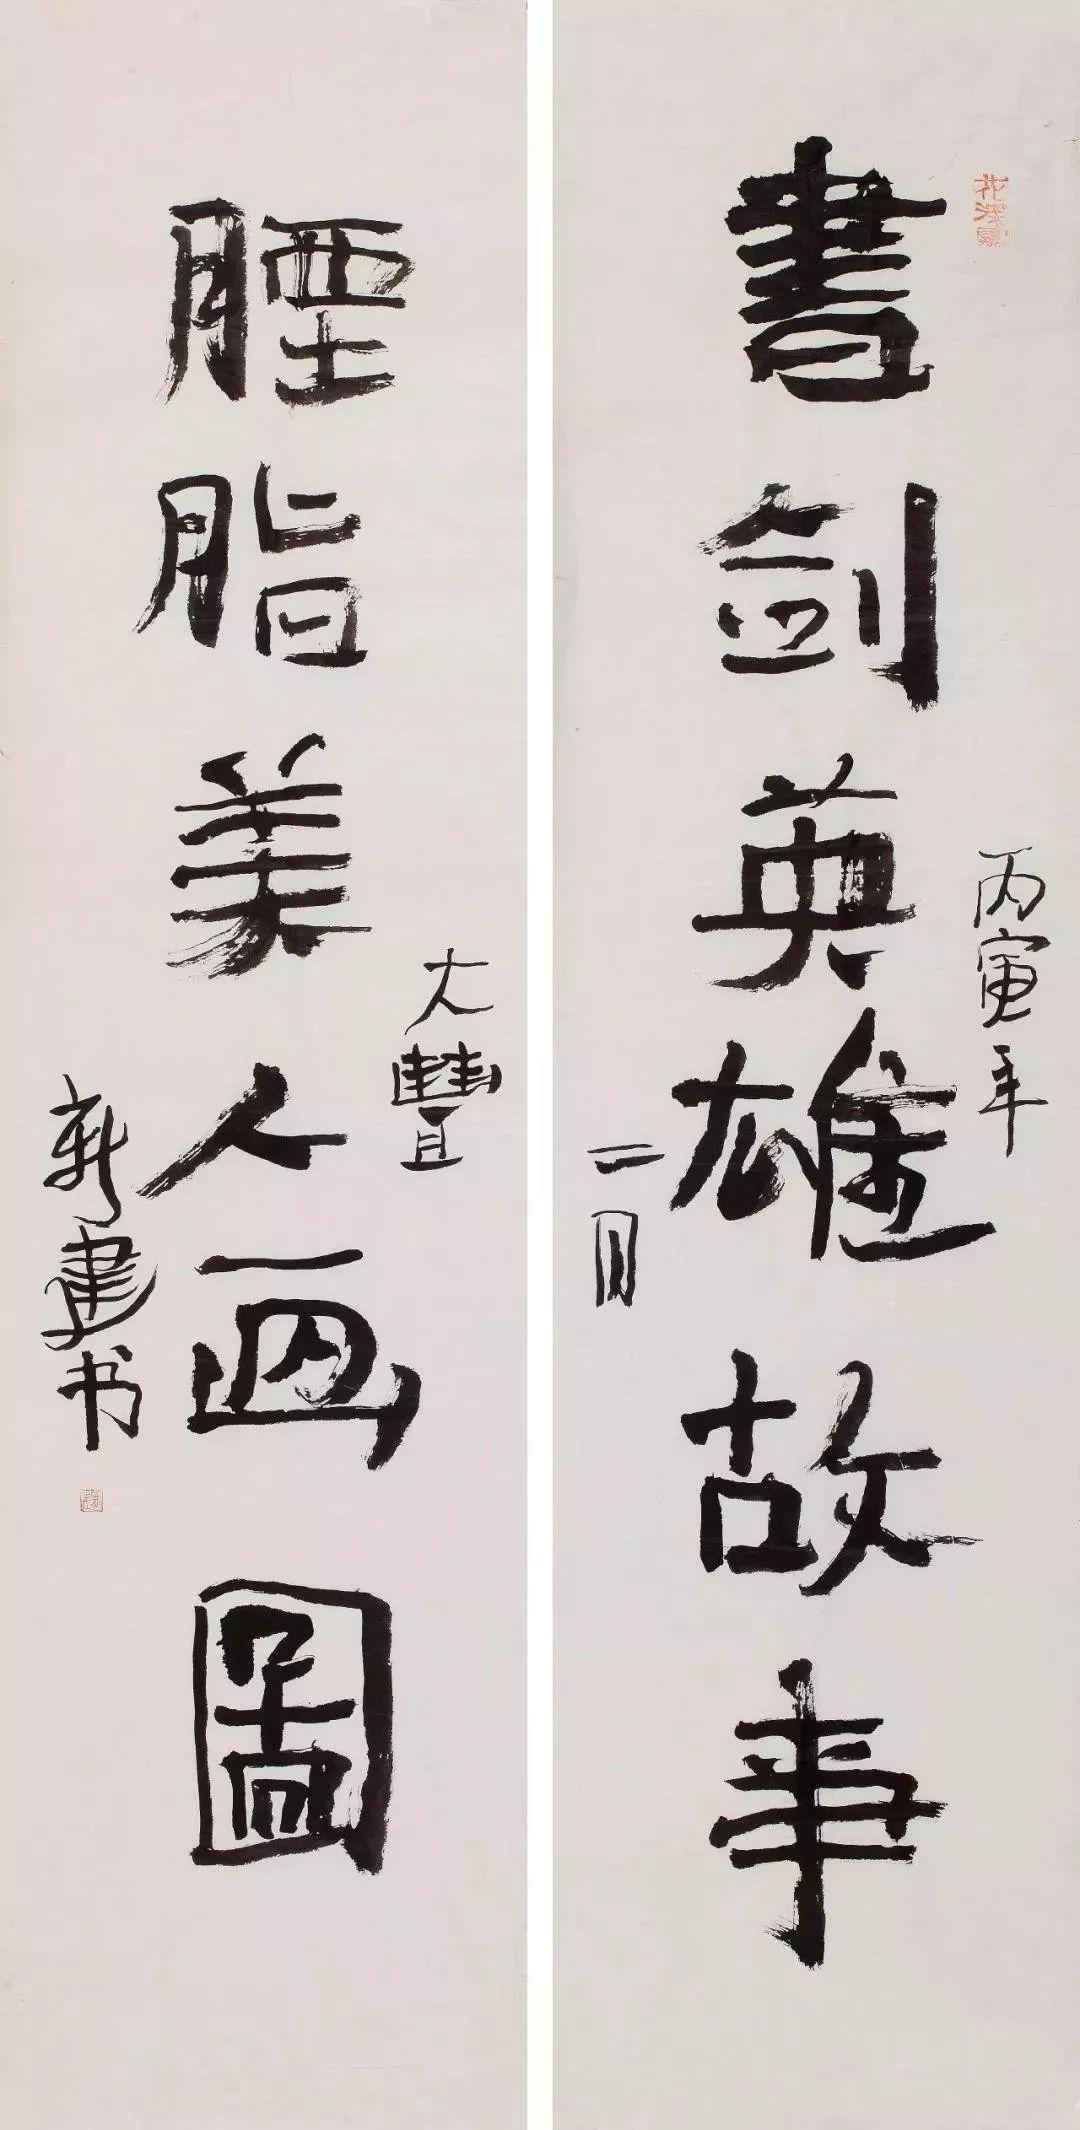 書劍英雄故事
丙寅年
二月
脂美人画圖
大豐
新建书